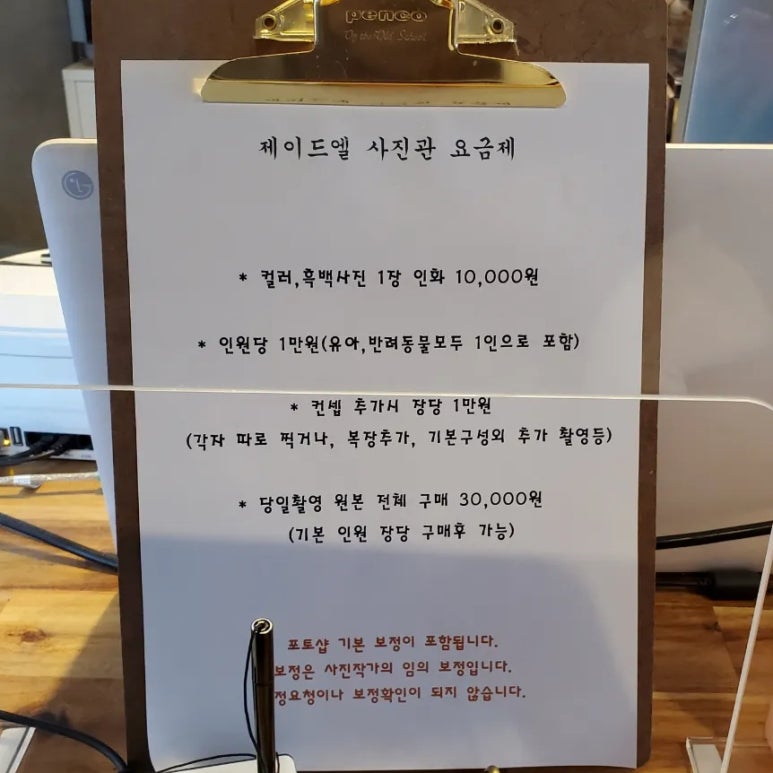 penco
On the Old School.
LG
제이드엘 사진관 요금제
* 컬러,흑백사진 1장 인화 10,000원
* 인원당 1만원(유아,반려동물모두 1인으로 포함)
* 컨셉 추가시 장당 1만원
(각자 따로 찍거나, 복장추가, 기본구성외 추가 촬영등)
* 당일촬영 원본 전체 구매 30,000원
(기본 인원 장당 구매후 가능)
포토샵 기본 보정이 포함됩니다.
보정은 사진작가의 임의 보정입니다.
정요청이나 보정확인이 되지 않습니다.